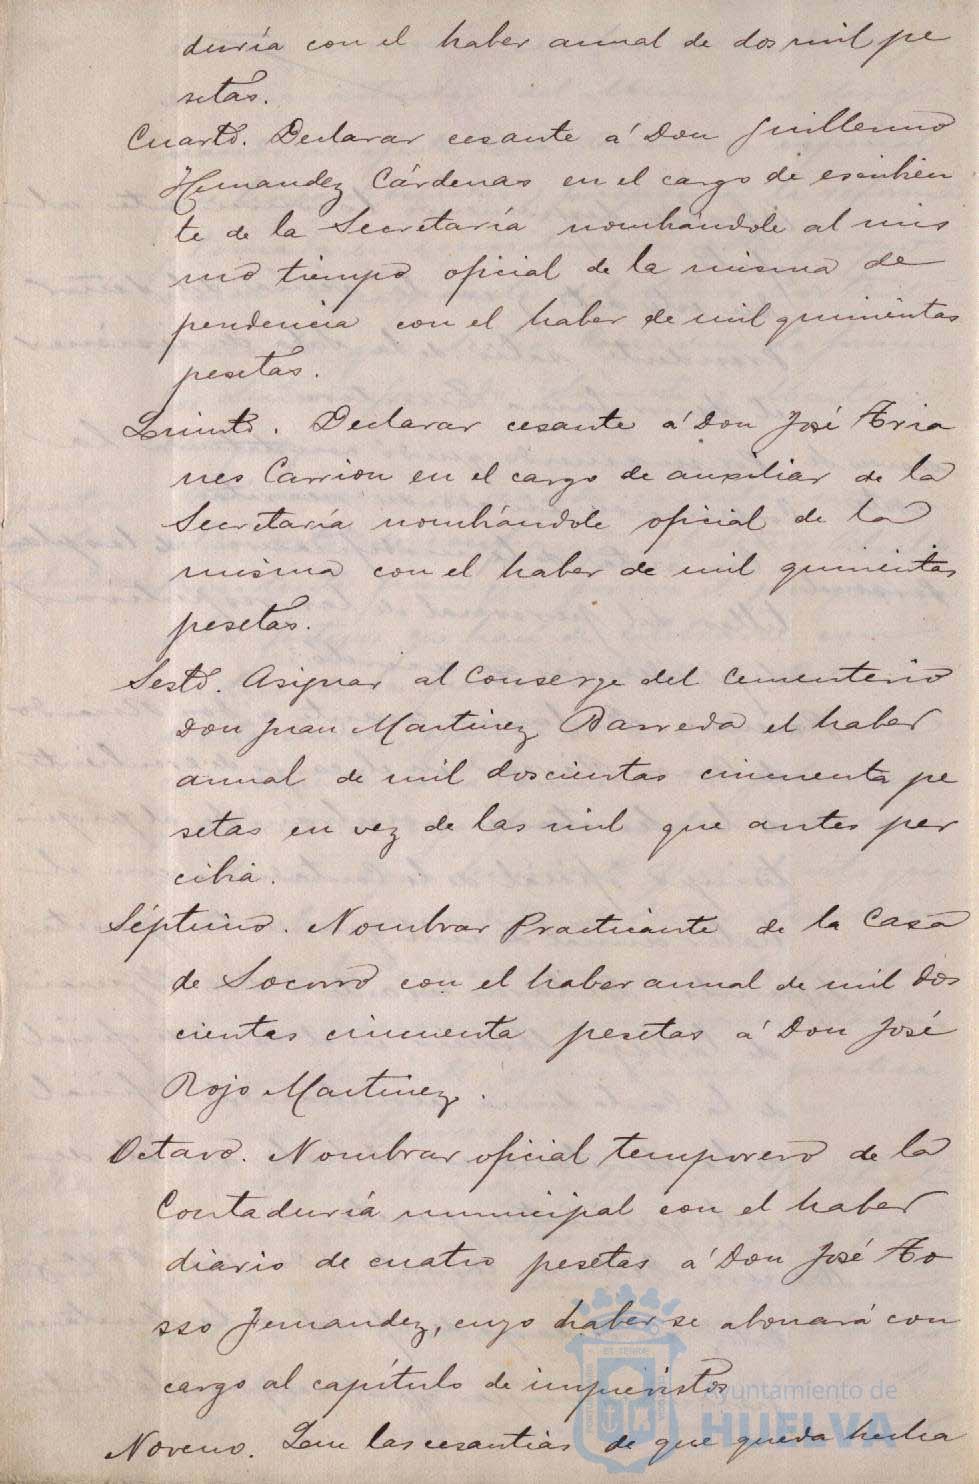 duría con el haber anual de dos mil pe
setas.
Cuarto. Declarar cesante á Don Guillermo
Hernandez Cárdenas en el cargo de escribien
te de la Secretaría nombrándole al mis
mo tiempo oficial de la misma de
pendencia con el haber de mil quinientas
pesetas.
Quinto. Declarar cesante á Don José Aria
nes Carrion en el cargo de auxiliar de la
Secretaría nombrándole oficial de la
misma con el haber de mil quinientas
pesetas.
Sesto. Asignar al Conserge del Cementerio
Don Juan Martinez Barreda el haber
anual de mil doscientas cincuenta pe
setas en vez de las mil que antes per
cibia.
Séptimo. Nombrar Practicante de la Casa
de Socorro con el haber anual de mil dos
cientas cincuenta pesetas á Don José
Rojo Martinez.
Octavo. Nombrar oficial temporero de la
Contaduría municipal con el haber
diario de cuatro pesetas á Don José
sso Fernandez, cuyo haber se abonará con
cargo al capítulo de imprevistos
Noveno. Que las cesantias de que queda hecha
Ayuntamiento de
HUELVA